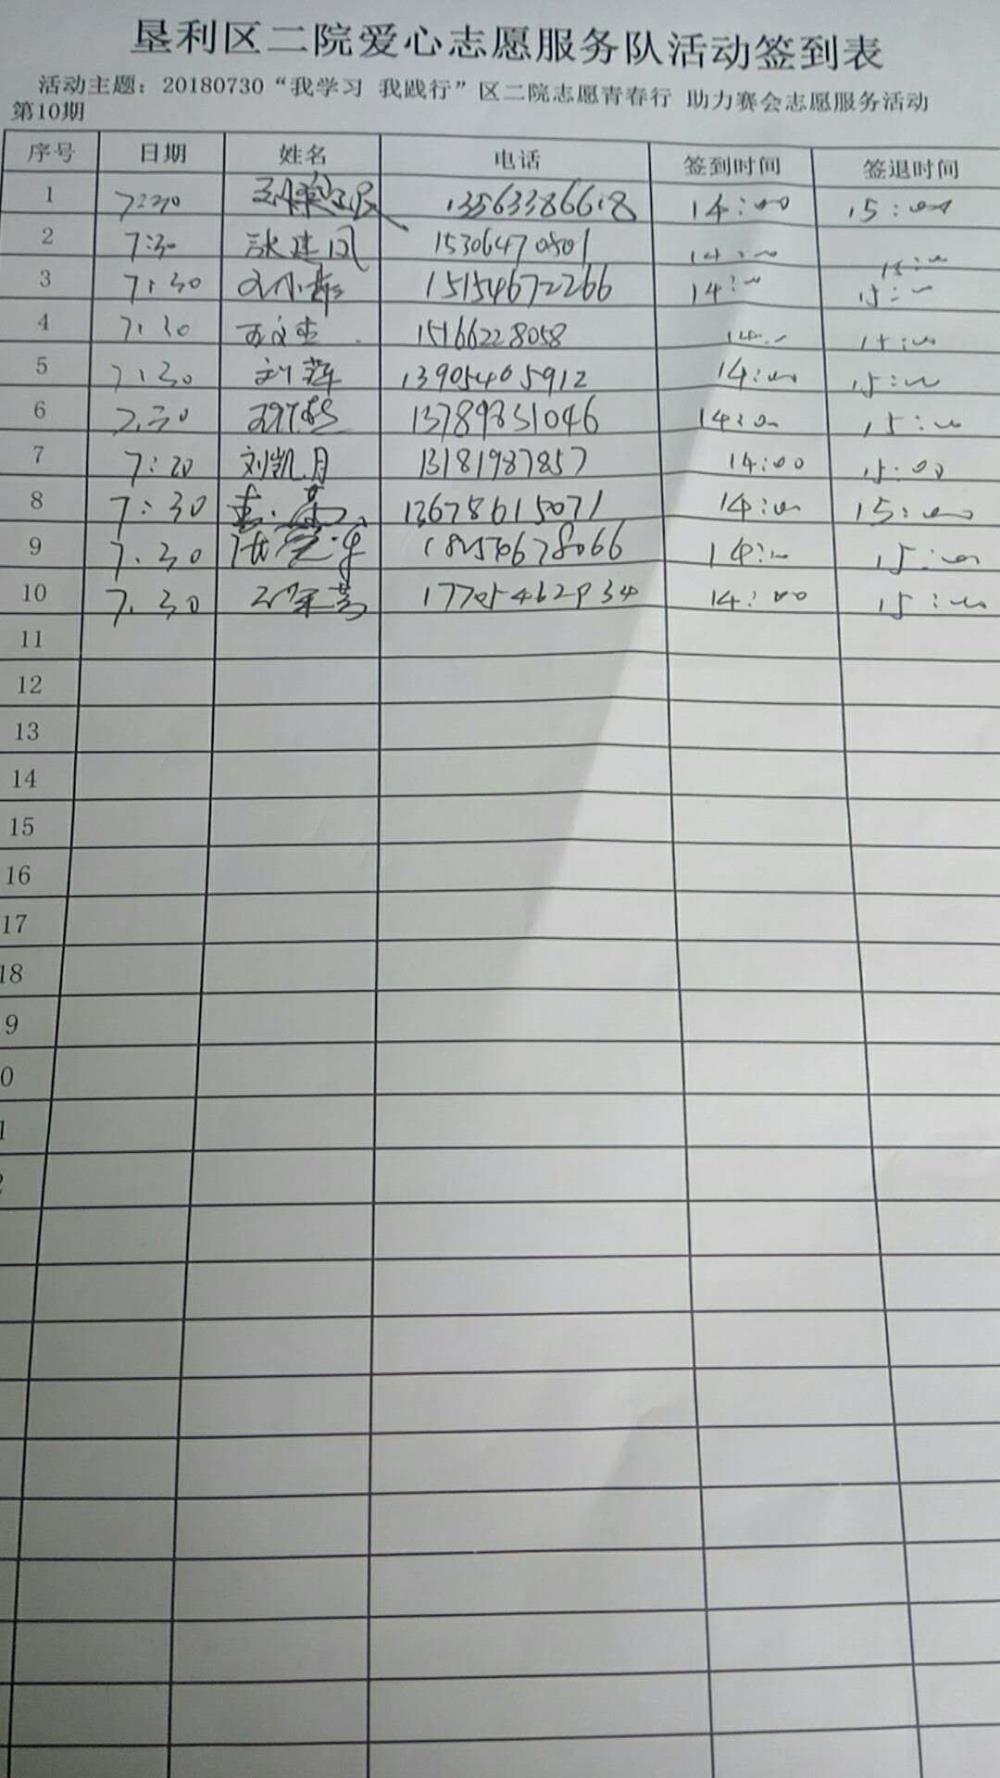 垦利区二院爱心志愿服务队活动签到表
活动主题：20180730“我学习 我践行”区二院志愿青春行 助力赛会志愿服务活动
第10期
序号 日期 姓名 电话 签到时间 签退时间
1 13563386618 14:00 15:00
2 7:30 张建凤 14:00 15:00
3 7:30 15154672266 14:00 15:00
4 7:30 15166228058 14:00 15:00
5 7:30 刘萍 13905405912 14:00 15:00
6 7:30 13789851046 14:00 15:00
7 7:20 刘凯月 13181987857 14:00 15:00
8 7:30 13678615071 14:00 15:00
9 7.30 14:00 15:00
10 7.30 17705462934 14:00 15:00
11
12
13
14
15
16
17
18
9
0
1
2